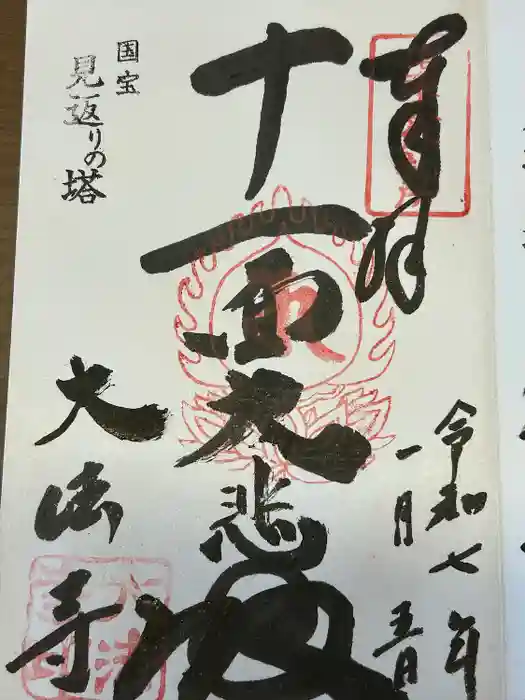 奉拝
令和七年
一月五日
十一面大悲殿
国宝
見返りの塔
大法寺